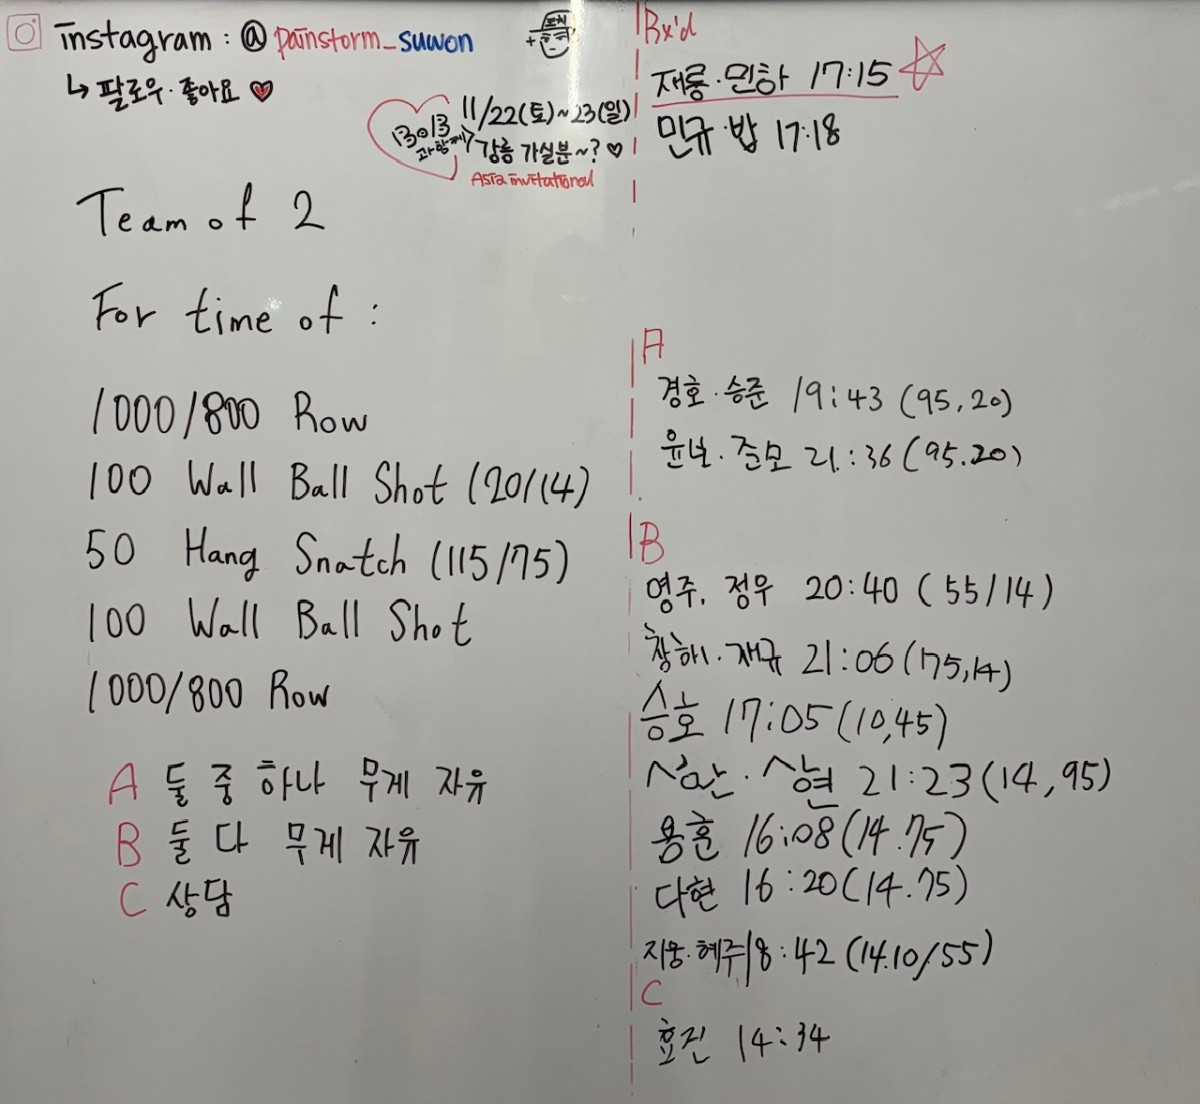 instagram : @ painstorm_suwon
↳ 팔로우·좋아요 ♥
코치
11/22(토)~23(일)
강릉 가실분~? ♡
Asia invitational
Team of 2
For time of :
1000/800 Row
100 Wall Ball Shot (20/14)
50 Hang Snatch (115/75)
100 Wall Ball Shot
1000/800 Row
A 둘 중 하나 무게 자유
B 둘 다 무게 자유
C 상담
Rx'd
재룡·민하 17:15
민규·밥 17:18
A
경호·승준 19:43 (95,20)
윤보·준모 21:36 (95.20)
B
영주, 정우 20:40 (55/14)
창해·재규 21:06 (175,14)
승호 17:05 (10,45)
상현 21:23 (14,95)
용훈 16:08 (14.75)
다현 16:20 (14.75)
지웅·혜주 18:42 (14.10/55)
C
효진 14:34